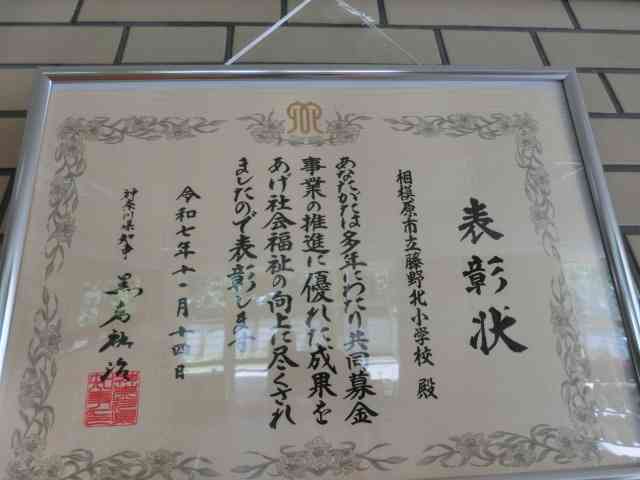 表彰状
相模原市立藤野北小学校 殿
あなたがたは多年にわたり共同募金
事業の推進に優れた成果を
あげ社会福祉の向上に尽くされ
ましたので表彰します
令和七年十一月十四日
神奈川県知事 黒岩祐治